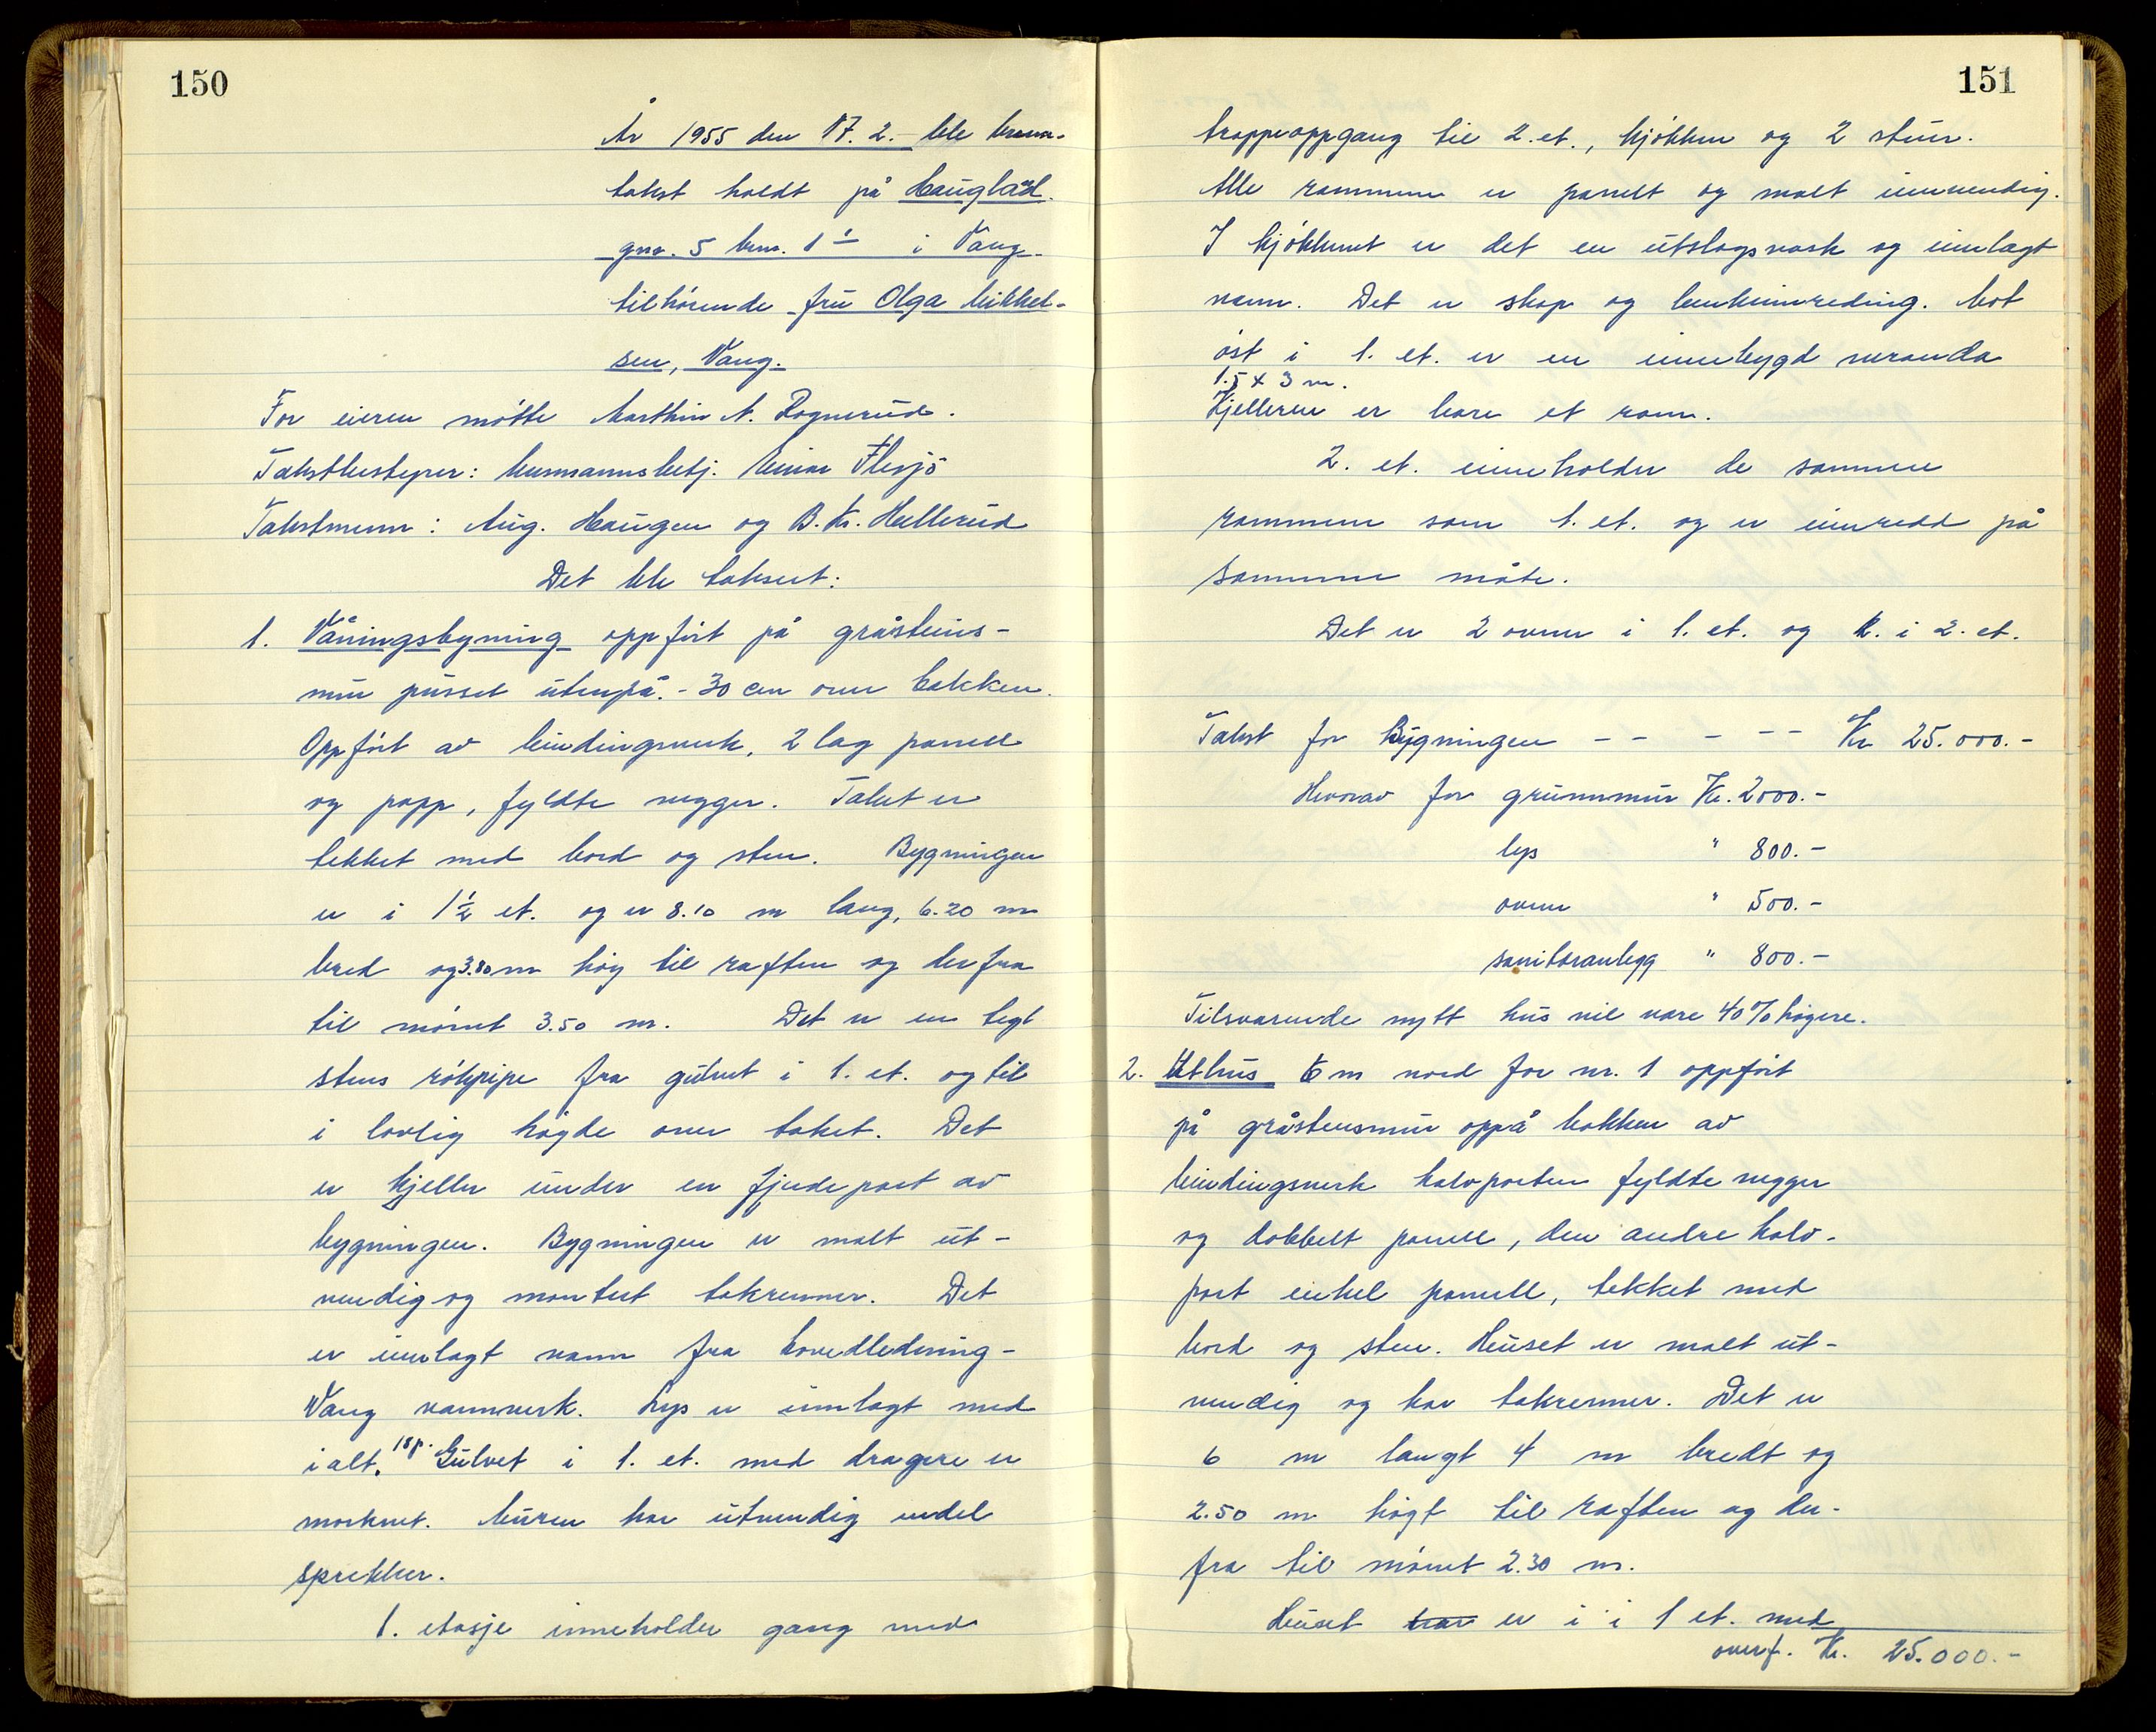 150
År 1955 den 17. 2. ble brann-
takst holdt på Hauglad
gnr. 5 bnr. 1 i Vang
tilhørende fru Olga Mikkel-
sen, Vang.
For eieren møtte Marthin A. Rognerud.
Takstbestyrer: lensmannsbetj. Einar Flesjø
Takstmenn: Aug. Haugen og B. Kr. Hellerud
Det ble taksert:
1. Våningsbygning oppført på gråsteins-
mur pusset utenpå - 30 cm over bakken.
Oppført av bindingsverk, 2 lag panell
og papp, fyldte vegger. Taket er
tekket med bord og sten. Bygningen
er i 1½ et. og er 8.10 m lang, 6.20 m
bred og 3.80 m høy til raften og derfra
til mønet 3.50 m. Det er en tegl
stens røkpipe fra gulvet i 1. et. og til
i lovlig høgde over taket. Det
er kjeller under en fjerdepart av
bygningen. Bygningen er malt ut-
vendig og montert takrenner. Det
er innlagt vann fra hovedledning-
Vang vannverk. Lys er innlagt med
ialt. 18 p. Gulvet i 1. et. med dragere er
morknet. Muren har utvendig endel
sprekker.
1. etasje inneholder gang med
151
trappeoppgang til 2. et., kjøkken og 2 stuer.
Alle rommene er panelt og malt innvendig.
I kjøkkenet er det en utslagsvask og innlagt
vann. Det er skap og benkinnreding. Mot
øst i 1. et. er en innebygd veranda
1.5 x 3 m.
Kjelleren er bare et rom.
2. et. inneholder de samme
rommene som 1. et. og er innredd på
samme måte.
Det er 2 ovner i 1. et. og i 2. et.
Takst for Bygningen - - - - - Kr 25.000.-
Hvorav for grunnmur Kr. 2000.-
lys " 800.-
ovner " 500.-
sanitæranlegg " 800.-
Tilsvarende nytt hus vil være 40% høgere.
2. Uthus 6 m nord for nr. 1 oppført
på gråstensmur oppå bakken av
bindingsverk halvparten fyldte vegger
og dobbelt panell, den andre halv-
part enkel panell, tekket med
bord og sten. Huset er malt ut-
vendig og har takrenner. Det er
6 m langt 4 m bredt og
2.50 m høgt til raften og der-
fra til mønet 2.30 m.
Huset har er i i 1 et. med
overf. Kr. 25.000.-